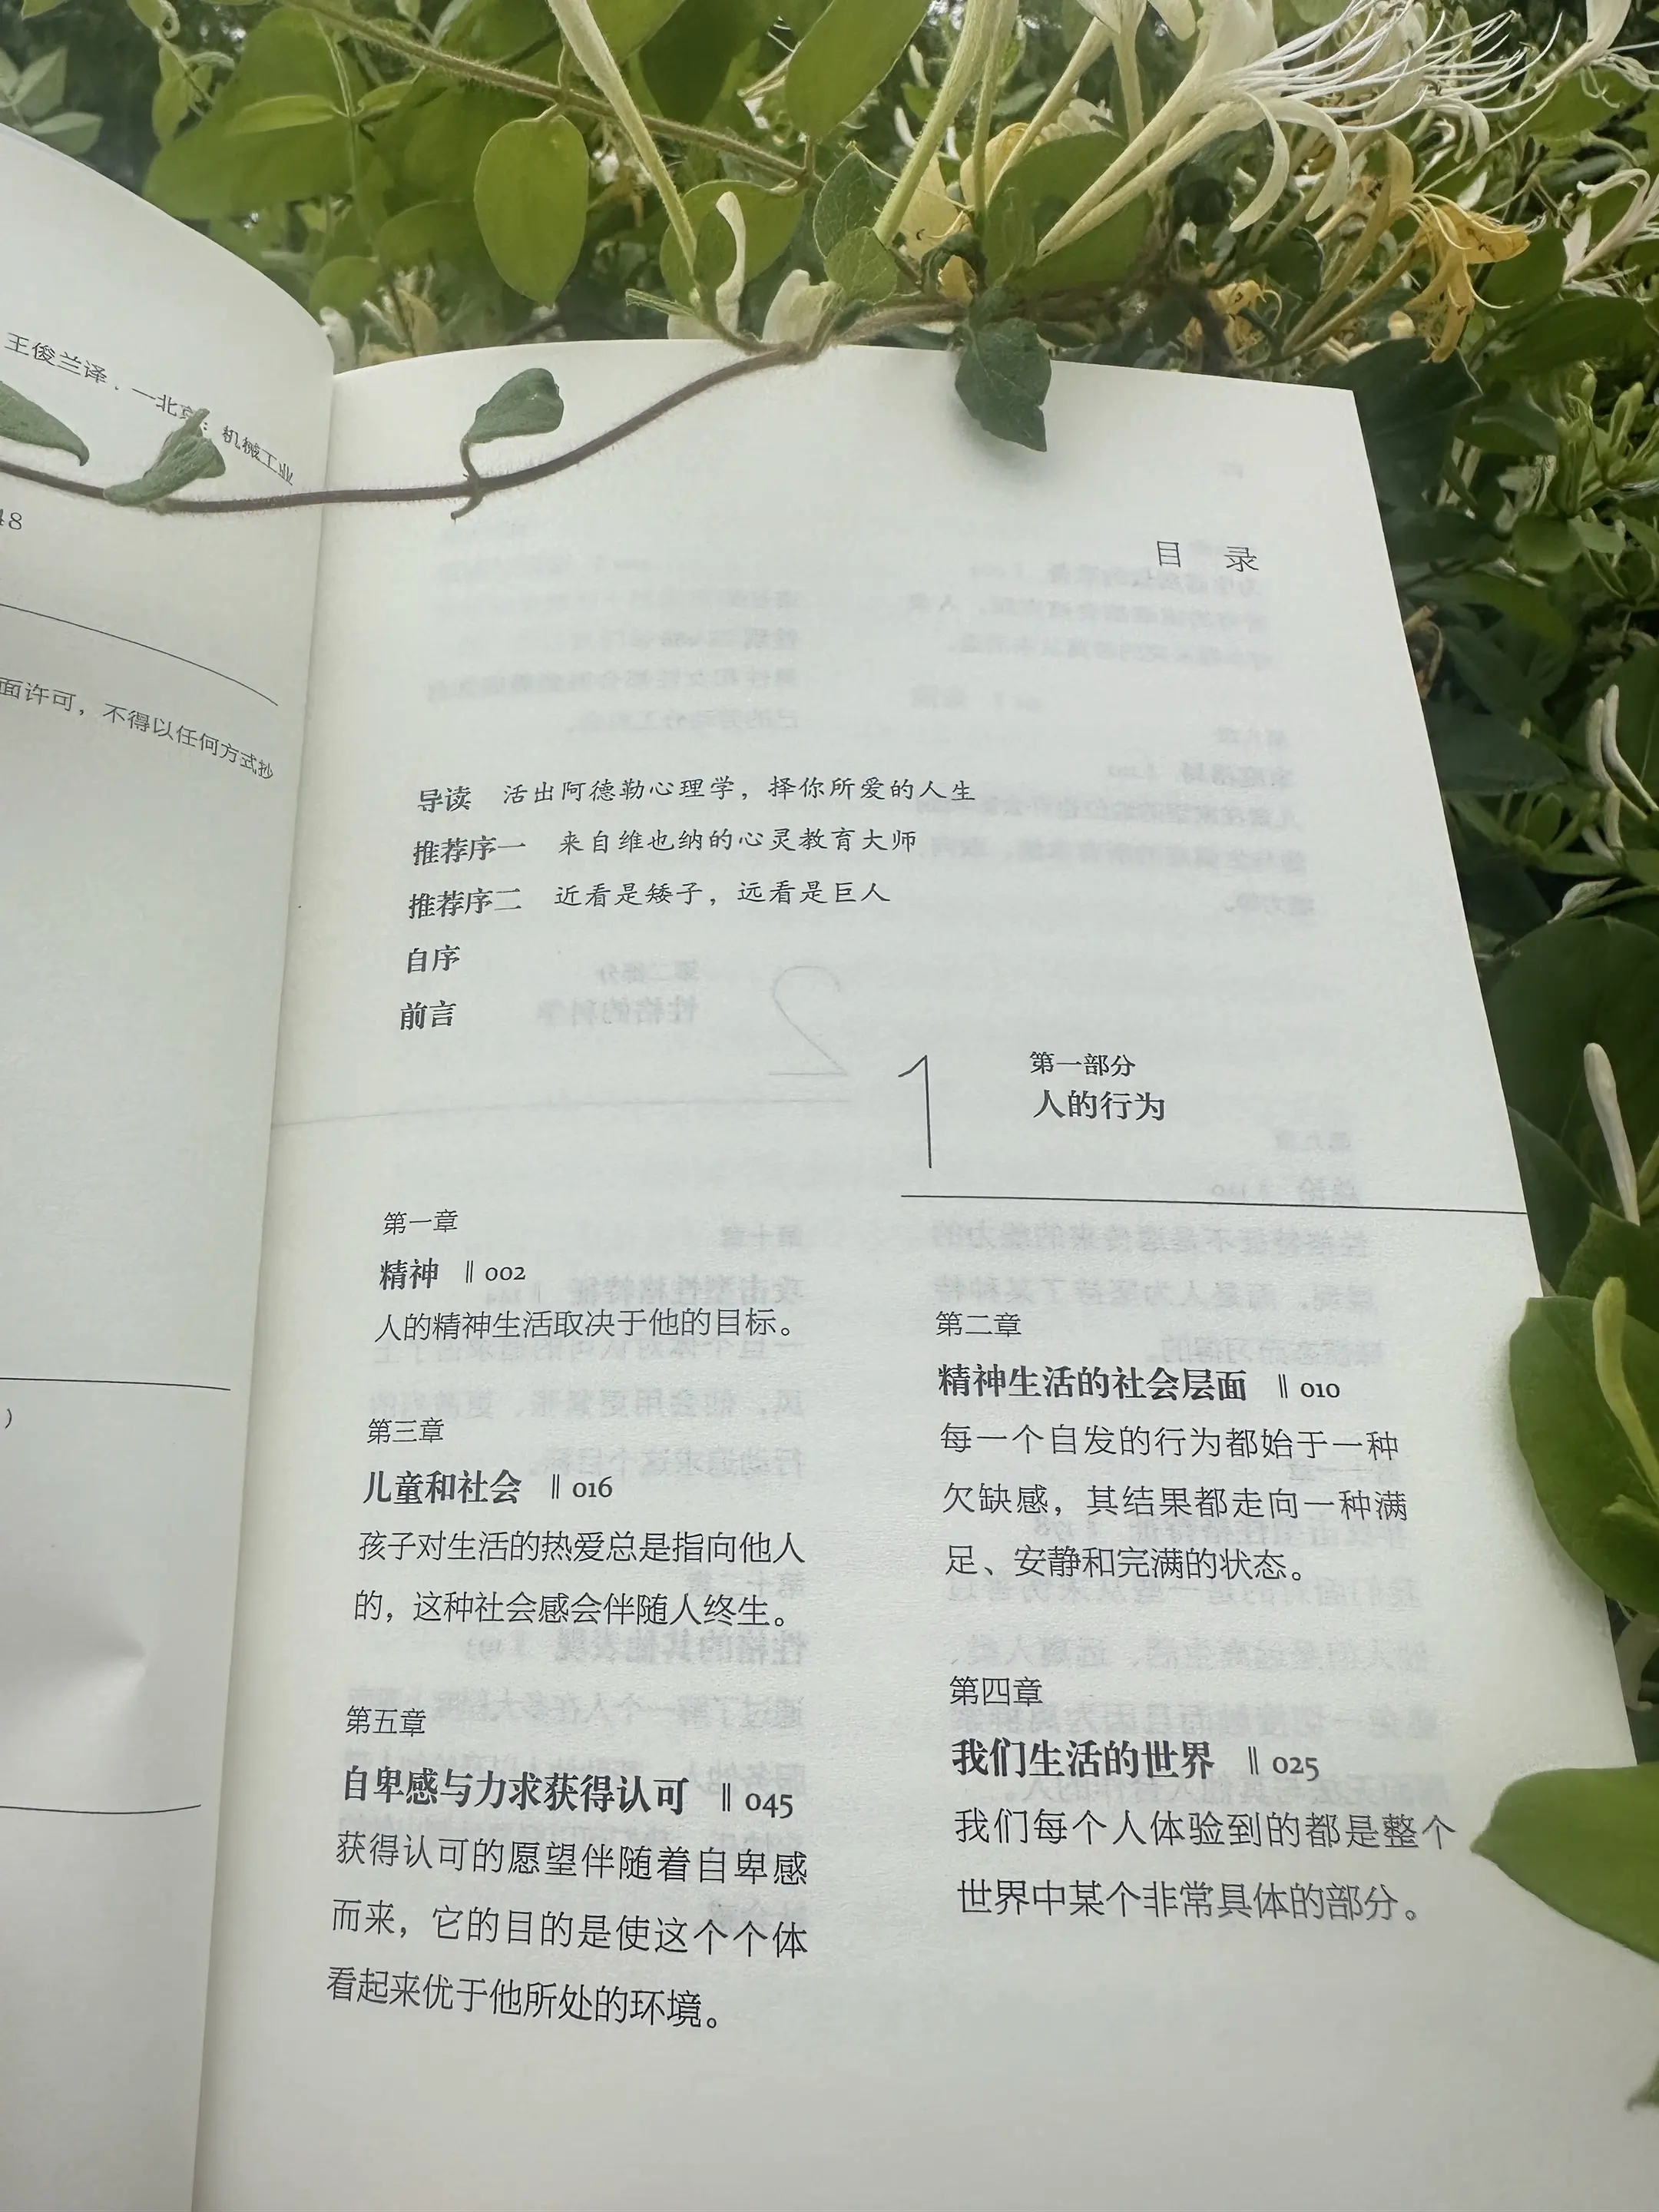 王俊兰译.—北京:机械工业
48
面许可，不得以任何方式抄
）
目 录
导读 活出阿德勒心理学，择你所爱的人生
推荐序一 来自维也纳的心灵教育大师
推荐序二 近看是矮子，远看是巨人
自序
前言
1
第一部分
人的行为
第一章
精神 ‖ 002
人的精神生活取决于他的目标。
第二章
精神生活的社会层面 ‖ 010
每一个自发的行为都始于一种
欠缺感，其结果都走向一种满
足、安静和完满的状态。
第三章
儿童和社会 ‖ 016
孩子对生活的热爱总是指向他人
的，这种社会感会伴随人终生。
第四章
我们生活的世界 ‖ 025
我们每个人体验到的都是整个
世界中某个非常具体的部分。
第五章
自卑感与力求获得认可 ‖ 045
获得认可的愿望伴随着自卑感
而来，它的目的是使这个个体
看起来优于他所处的环境。